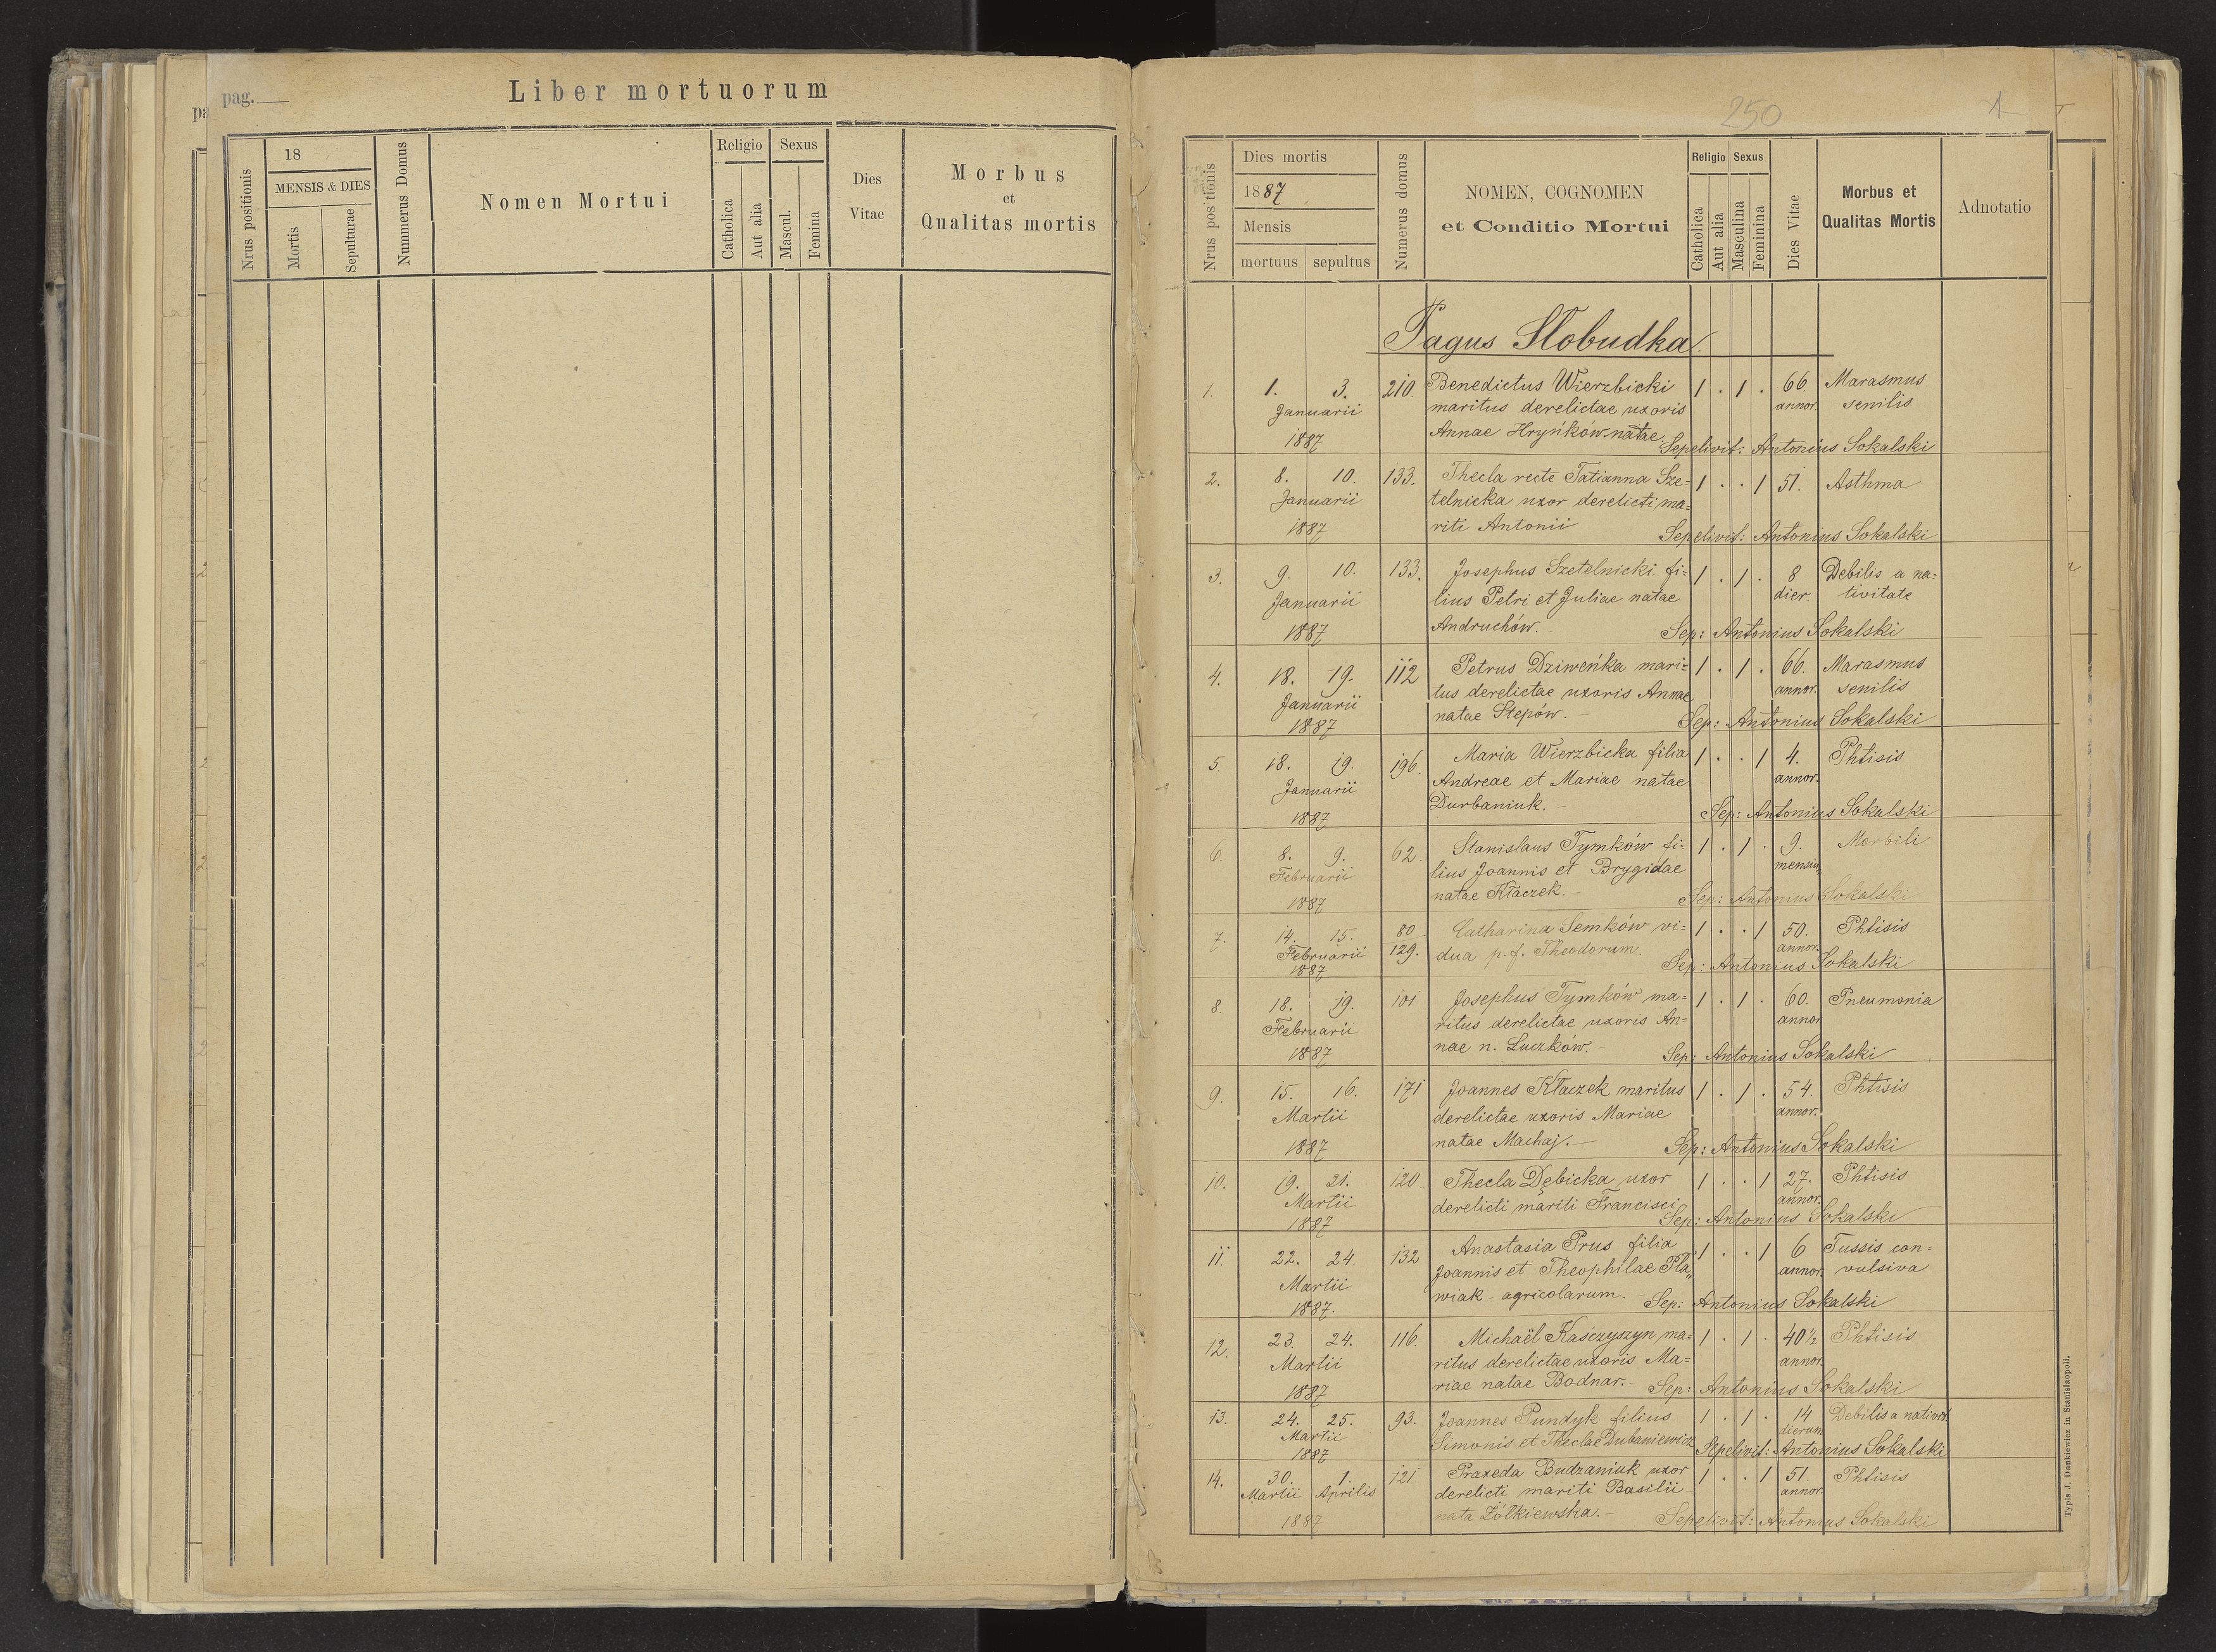 pag.
Liber mortuorum
Nrus positionis
18
MENSIS & DIES
Mortis
Sepulturae
Nummerus Domus
Nomen Mortui
Religio
Catholica
Aut alia
Sexus
Mascul.
Femina
Dies
Vitae
Morbus
et
Qualitas mortis
250
1
Nrus positionis
Dies mortis
1887
Mensis
mortuus
sepultus
Numerus domus
NOMEN, COGNOMEN
et Conditio Mortui
Religio
Sexus
Catholica
Aut alia
Masculina
Feminina
Dies Vitae
Morbus et
Qualitas Mortis
Adnotatio
Pagus Slobudka.
1. 1. 3. 210. Benedictus Wierzbicki 1 . 1 . 66 Marasmus
Januarii maritus derelictae uxoris annor. senilis
1887 Annae Hryńków natae Sepelivit: Antonius Sokalski
2. 8. 10. 133. Thecla recte Tatianna Sze= 1 . . 1 51. Asthma
Januarii telnicka uxor derelicti ma=
1887 riti Antonii Sepelivit: Antonius Sokalski
3. 9. 10. 133. Josephus Szetelnicki fi= 1 . 1 . 8 Debilis a na=
Januarii lius Petri et Juliae natae dier. tivitate
1887 Andruchów. Sep: Antonius Sokalski
4. 18. 19. 112 Petrus Dziweńka mari= 1 . 1 . 66. Marasmus
Januarii tus derelictae uxoris Annae annor. senilis
1887 natae Stepów. – Sep: Antonius Sokalski
5. 18. 19. 196. Maria Wierzbicka filia 1 . . 1 4. Phtisis
Januarii Andreae et Mariae natae annor.
1887 Durbaniuk. – Sep: Antonius Sokalski
6. 8. 9. 62. Stanislaus Tymków fi= 1 . 1 . 9. Morbili
Februarii lius Joannis et Brygidae mensiu
1887 natae Kłaczek. – Sep: Antonius Sokalski
7. 14. 15. 80 Catharina Semków vi= 1 . . 1 50. Phtisis
Februarii 129. dua p. f. Theodorum. annor.
1887 Sep: Antonius Sokalski
8. 18. 19. 101 Josephus Tymków ma= 1 . 1 . 60. Pneumonia
Februarii ritus derelictae uxoris An= annor
1887 nae n. Łuczków. – Sep: Antonius Sokalski
9. 15. 16. 171 Joannes Kłaczek maritus 1 . 1 . 54. Phtisis
Martii derelictae uxoris Mariae annor.
1887 natae Machaj. – Sep: Antonius Sokalski
10. 19. 21. 120. Thecla Dębicka uxor 1 . . 1 27. Phtisis
Martii derelicti mariti Francisci annor.
1887 Sep: Antonius Sokalski
11. 22. 24. 132 Anastasia Prus filia 1 . . 1 6 Tussis con=
Martii Joannis et Theophilae Pla„ annor. vulsiva
1887. wiak agricolarum. – Sep: Antonius Sokalski
12. 23. 24. 116. Michaël Kaśczyszyn ma= 1 . 1 . 40½ Phtisis
Martii ritus derelictae uxoris Ma= annor.
1887 riae natae Bodnar. – Sep: Antonius Sokalski
13. 24. 25. 93. Joannes Pundyk filius 1 . 1 . 14 Debilis a nativit.
Martii Simonis et Theclae Dubaniewicz dierum
1887 Sepelivit: Antonius Sokalski
14. 30. 1. 121 Praxeda Budzaniuk uxor 1 . . 1 51. Phtisis
Martii Aprilis derelicti mariti Basilii annor.
1887 nata Żółkiewska. – Sepelivit: Antonius Sokalski
Typis J. Dankiewicz in Stanislaopoli.